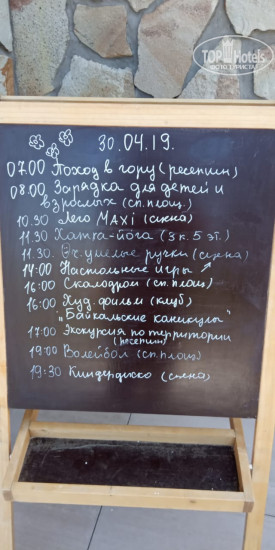 TOPHotels
30.04.19.
07.00 Поход в гору (ресепшн)
08.00 Зарядка для детей и
взрослых (сп. площ.)
10.30 Лего MAXI (сцена)
11.30 Хатха-йога (3 к. 5 эт.)
11.30. Оч. умелые ручки (сцена)
14:00 Настольные игры
16:00 Скалодром (сп. площ)
16:00 Худ. фильм (клуб)
"Байкальские каникулы"
17:00 Экскурсия по территории
(ресепшн)
19:00 Волейбол (сп. площ)
19:30 Киндердиско (сцена)